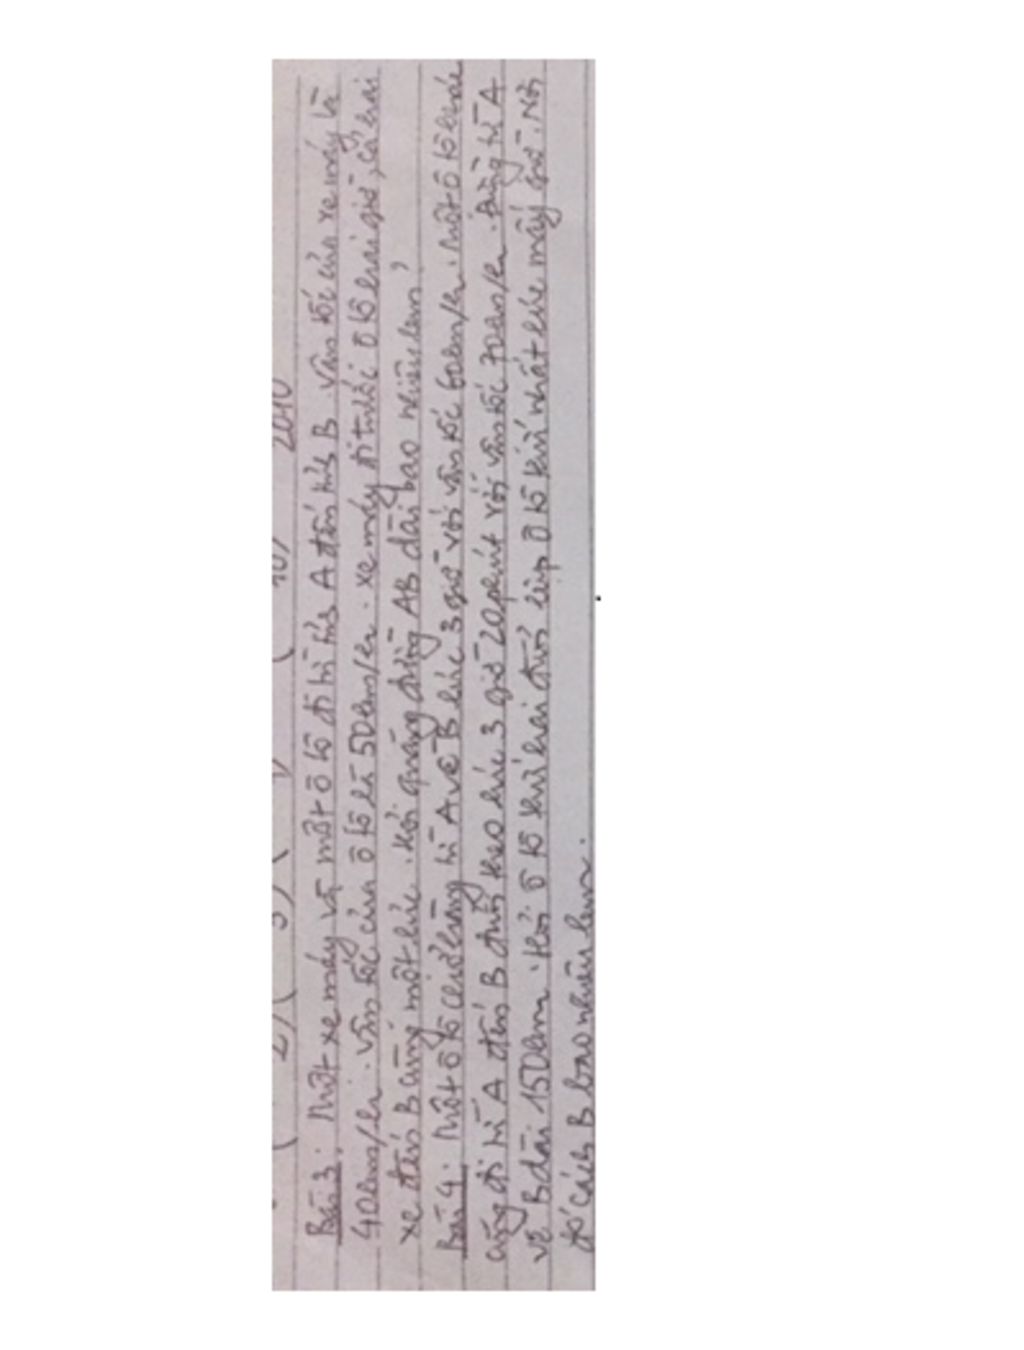 2)( 3)( 10) 2010
Bài 3: Một xe máy và một ô tô đi từ tỉnh A đến tỉnh B. Vận tốc của xe máy là
40km/h. Vận tốc của ô tô là 50km/h. xe máy đi trước ô tô hai giờ, cả hai
xe đến B cùng một lúc. Hỏi quãng đường AB dài bao nhiêu km?
Bài 4: Một ô tô chở hàng từ A về B lúc 3 giờ với vận tốc 60km/h. Một ô tô khác
cũng đi từ A đến B đuổi theo lúc 3 giờ 20 phút với vận tốc 70km/h. Đường từ A
về B dài 150km. Hỏi ô tô thứ hai đuổi kịp ô tô thứ nhất lúc mấy giờ. Nơi
đó cách B bao nhiêu km.